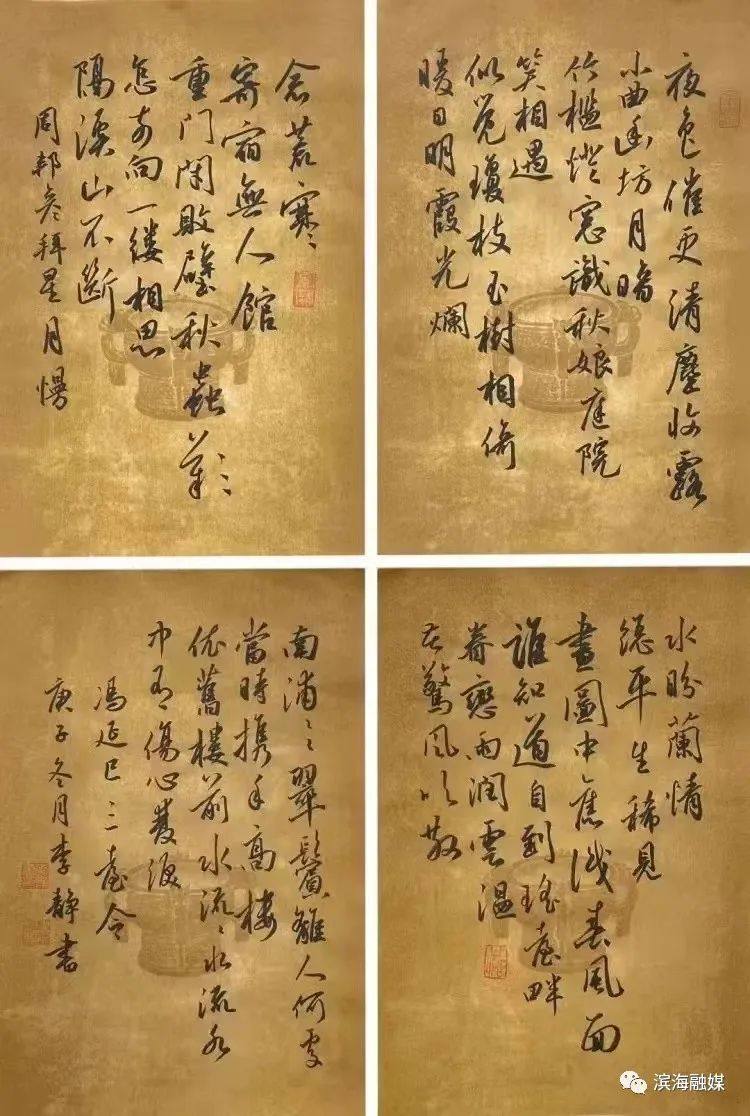 夜色催更清塵收露
小曲幽坊月暗
竹檻燈窓識秋娘庭院
笑相遇
似覺瓊枝玉樹相倚
暖日明霞光爛
水盼蘭情
總平生稀見
畫圖中舊識春風面
誰知道自到瑤臺畔
眷戀雨潤雲溫
苦驚風吹散
念荒寒
寄宿無人館
重門閉敗壁秋蟲歎
怎奈向一縷相思
隔溪山不斷
周邦彥拜星月慢
南浦々翠鬢離人何處
當時携手高樓
依舊樓前水流々水流水
中有傷心雙淚
馮延巳三臺令
庚子冬月李靜書
滨海融媒